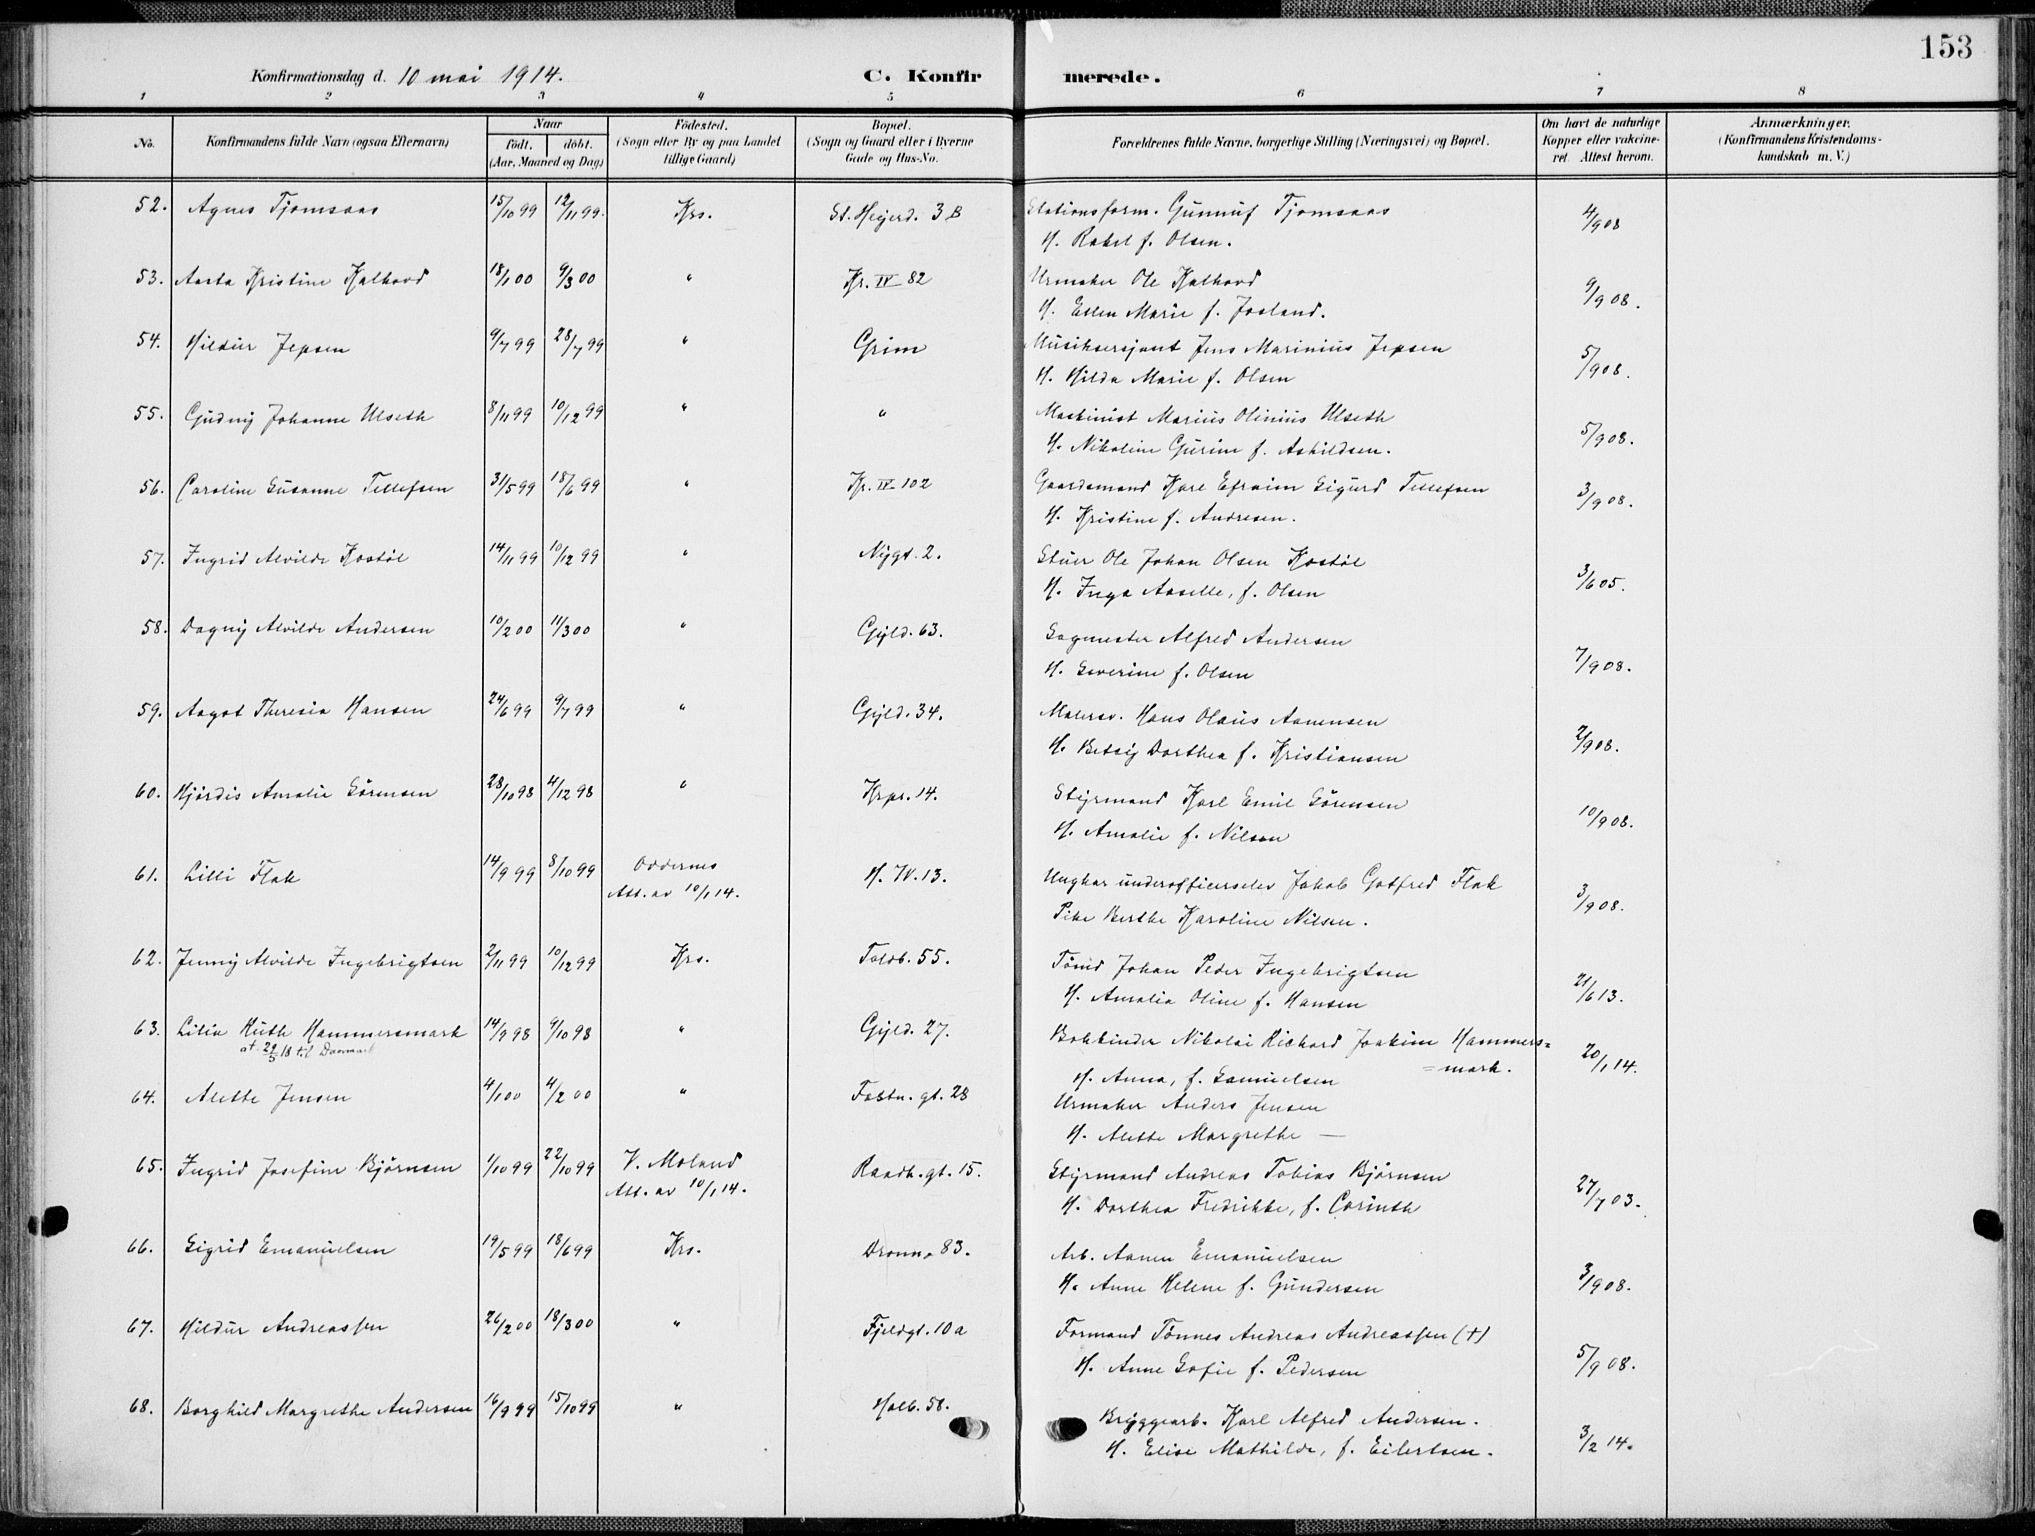 153
Konfirmationsdag d. 10 mai 1914. C. Konfirmerede.
1 2 3 4 5 6 7 8
No. Konfirmandens fulde Navn (ogsaa Efternavn) Naar født. døbt. (Aar, Maaned og Dag) Fødested. (Sogn eller By og paa Landet tillige Gaard) Bopæl. (Sogn og Gaard eller i Byerne Gade og Hus-No. Forældrenes fulde Navne, borgerlige Stilling (Næringsvei) og Bopæl. Om havt de naturlige Kopper eller vakcineret. Attest herom. Anmærkninger. (Konfirmandens Kristendomskundskab m. V.)
52. Agnes Tjomsaas 15/10 99 12/11 99. Krs. St. Hejerd. 3B Stationsform. Gunnuf Tjomsaas 4/9 08
H. Rakel f. Olsen.
53. Aasta Kristine Kalhovd 18/1 00 9/3 00 " Kr. IV 82 Urmaker Ole Kalhovd 9/9 08.
H. Ellen Marie f. Josland.
54. Hildur Jepsen 9/7 99 28/7 99 " Grim Musiksersjant Jens Marinius Jepsen 5/9 08.
H. Hilda Marie f. Olsen
55. Gudny Johanne Ulseth 8/11 99 10/12 99 " " Maskinist Marius Olinius Ulseth 5/9 08.
H. Nikoline Gurine f. Askildsen.
56. Caroline Susanne Tellefsen 31/5 99 18/6 99 " Kr. IV 102 Gaardsmand Karl Efraim Sigurd Tellefsen 3/9 08.
H. Kristine f. Andresen.
57. Ingrid Alvilde Kostøl 14/11 99 10/12 99 " Nygt. 2. Stuer Ole Johan Olsen Kostøl 3/6 05.
H. Inga Aaselle, f. Olsen
58. Dagny Alvilde Andersen 10/2 00 11/3 00 " Gyld. 63. Sagmester Alfred Andersen 7/9 08.
H. Severine f. Olsen
59. Aagot Theresia Hansen 24/6 99 9/7 99 " Gyld. 34. Malersv. Hans Olaus Aanensen 2/9 08.
H. Betsy Dorthea f. Kristiansen
60. Hjørdis Amalie Sørensen 28/10 98 4/12 98 " Krpr. 14. Styrmand Karl Emil Sørensen 10/9 08.
H. Amalie f. Nilsen
61. Lilli Flak 14/9 99 8/10 99 Oddernes H. IV. 13. Ungkar underofficerselev Jakob Gotfred Flak 3/9 08.
Att. av 10/1 14. Pike Berthe Karoline Nilsen.
62. Jenny Alvilde Ingebrigtsen 2/11 99 10/12 99 Krs. Toldb. 55. Tømd Johan Peder Ingebrigtsen 21/6 13.
H. Amalia Oline f. Hansen
63. Lilia Ruth Hammersmark 14/9 98 9/10 98 " Gyld. 27. Bokbinder Nikolai Richard Joakim Hammers= 20/1 14.
at. 29/5 18 til Danmark =mark.
H. Anna, f. Samuelsen
64. Alette Jensen 4/1 00 4/2 00 " Festn. gt. 28 Urmaker Anders Jensen
H. Alette Margrethe —
65. Ingrid Josefine Bjørnsen 1/10 99 22/10 99 V. Moland Raadh. gt. 15. Styrmand Andreas Tobias Bjørnsen 27/7 03.
Att. av 10/1 14. H. Dorthea Fredrikke, f. Corinth
66. Sigrid Emanuelsen 19/5 99 18/6 99 Krs. Dronn. 83. Arb. Aanen Emanuelsen 3/9 08.
H. Anne Helene f. Gundersen
67. Hildur Andreassen 26/2 00 18/3 00 " Fjeldgt. 10a Formand Tønnes Andreas Andreassen (+) 5/9 08.
H. Anne Sofie f. Pedersen
68. Borghild Margrethe Andersen 16/9 99 15/10 99 " Holb. 58. Bryggearb. Karl Alfred Andersen. 3/2 14.
H. Elise Mathilde, f. Eilertsen.